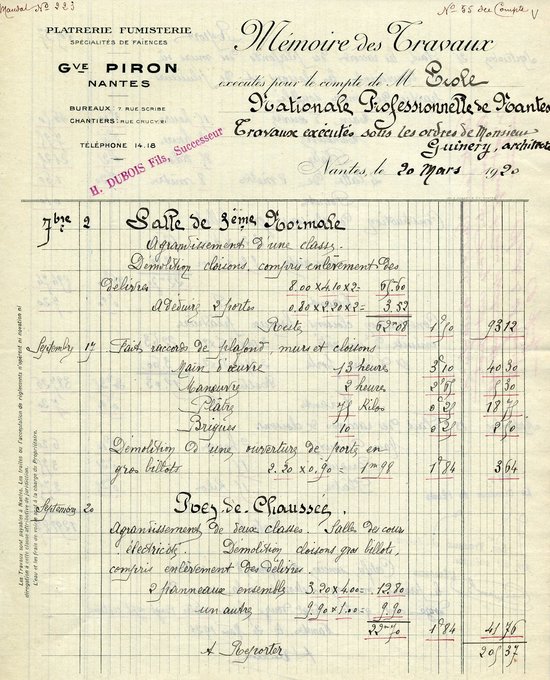 Mandat Nº 223
Nº 55 du Compte
PLATRERIE FUMISTERIE
SPÉCIALITÉS DE FAIENCES
GVE PIRON
NANTES
BUREAUX: 7 RUE SCRIBE
CHANTIERS: RUE CRUCY. 21
TÉLÉPHONE 14.18
H. DUBOIS Fils, Successeur
Mémoire des Travaux
exécutés pour le compte de M Ecole
Nationale Professionnelle de Nantes
Travaux exécutés sous les ordres de Monsieur
Guinery, architecte
Nantes, le 20 Mars 1920
7bre 2 Salle de 3ème Normale
Agrantissement d'une classe.
Démolition cloisons, compris enlèvement des
délivres 8.00 x 4.10 x 2 = 65.60
A déduire 2 portes 0.80 x 2.20 x 2 = 3.52
Reste 62 08 1f50 93 12
Septembre 17 Faits raccords de plafond, murs et cloisons
Main d'œuvre 13 heures 3f10 40 30
Manœuvre 2 heures 2f65 5 30
Plâtre 75 Kilos 0f25 18 75
Briques 10 0f25 2 50
Démolition d'une ouverture de porte en
gros billots 2.20 x 0.90 = 1m98 1f84 3 64
Septembre 20 Rez-de-Chaussée.
Agrantissement de deux classes. Salles des cours
électricité. Démolition cloisons gros billots,
compris enlèvement des délivres.
2 panneaux ensemble 3.20 x 4.00 = 12.80
un autre 9.90 x 1.00 = 9.90
22m70 1f84 41 76
A Reporter 205 37
Les Travaux sont payables à Nantes. Les traites ou l'acceptation de règlements n'opèrent ni novation ni
dérogation à cette clause attributive de juridiction.
L'eau et les frais en route sont à la charge du Propriétaire.